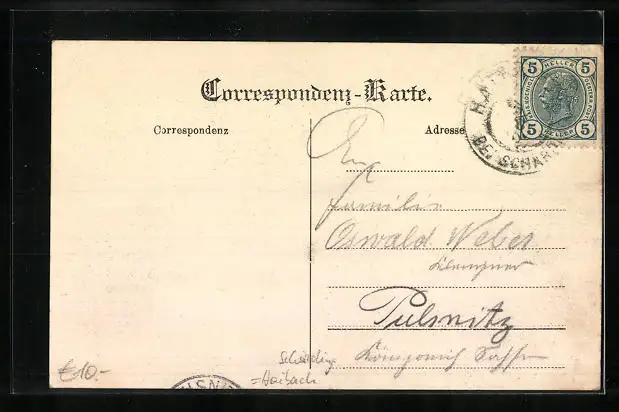 Correspondenz-Karte.
Correspondenz
Adresse
5 HELLER 5
5 HELLER 5
BEI SCHÄRD
An
Familie
Oswald Weber
Klempner
Pulsnitz
Königreich Sachsen
Schärding
=Haibach
€10.-